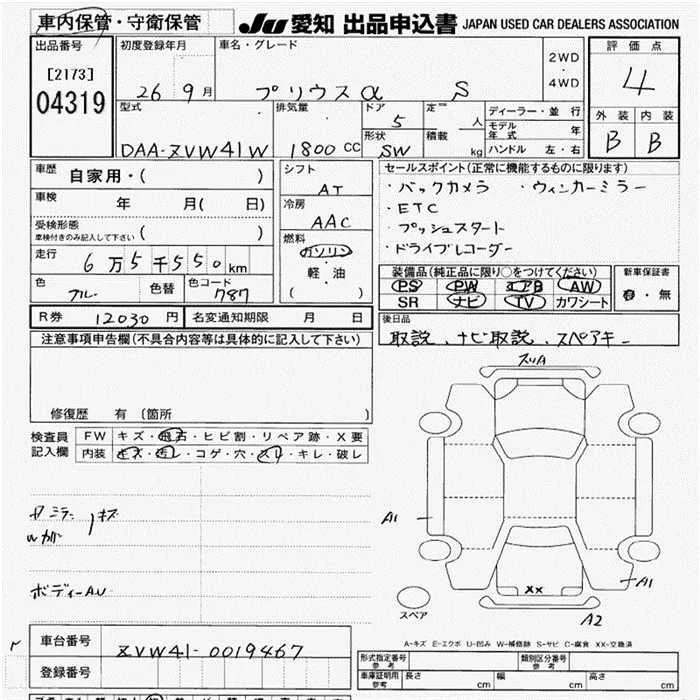 車内保管・守衛保管 JU 愛知 出品申込書 JAPAN USED CAR DEALERS ASSOCIATION
出品番号 初度登録年月 車名・グレード 2WD・4WD 評価点
[2173] 26 9月 プリウスα S 4
04319 型式 排気量 ドア 定員 ディーラー・並行 外装 内装
DAA-ZVW41W 1800cc 5 人 モデル年式 年 B B
形状 SW 積載 kg ハンドル 左・右
車歴 自家用・( ) シフト AT セールスポイント(正常に機能するものに限ります)
車検 年 月( 日) 冷房 AAC ・バックカメラ ・ウィンカーミラー
受検形態 ・ETC
車検付きのみ記入して下さい ( ) 燃料 ・プッシュスタート
走行 6万5千550km ガソリン・軽・油 ・ドライブレコーダー
( ) 装備品(純正品に限り○をつけてください) 新車保証書
色 色替 色コード 787 PS PW エアB AW 有・無
SR ナビ TV カワシート
R券 12030円 名変通知期限 月 日 後日品
注意事項申告欄(不具合内容等は具体的に記入して下さい) 取説、ナビ取説、スペアキー
修復歴 有 〔箇所 〕
検査員 FW キズ・飛石・ヒビ割・リペア跡・X要
記入欄 内装 キズ・汚レ・コゲ・穴・スレ・キレ・破レ
スリA
A1
A1
XX
A2
スペア
キズ
ボディーAU
A-キズ E-エクボ U-凹み W-補修跡 S-サビ C-腐食 XX-交換済
車台番号 ZVW41-0019467
登録番号
形式指定番号 参考 類別区分番号 参考
車庫証明用 参考 長さ cm 幅 cm 高さ cm